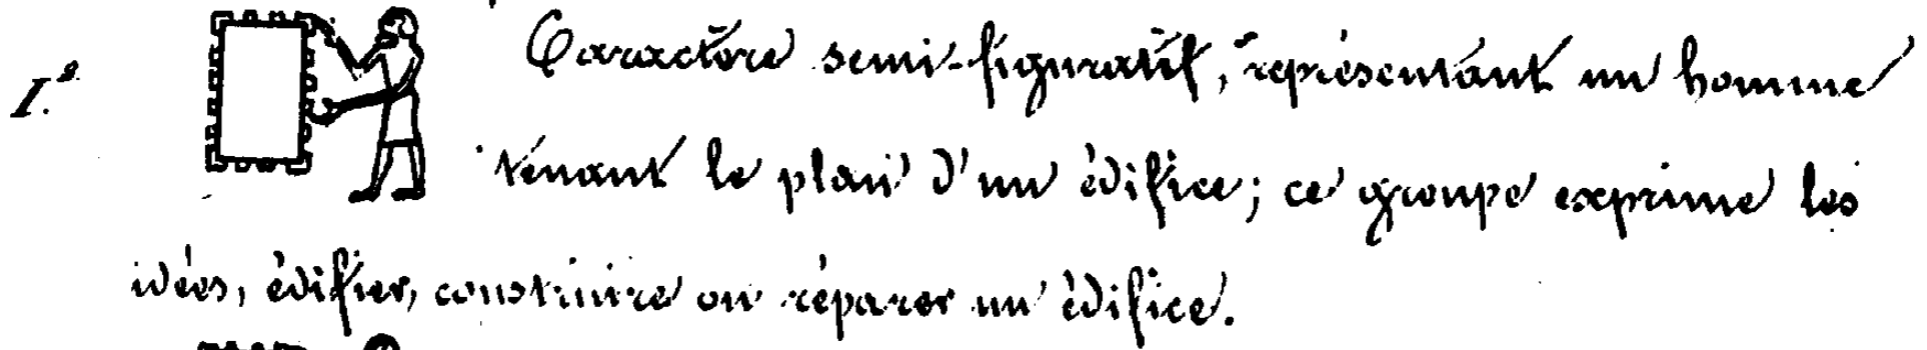 I.º Caractère semi-figuratif, représentant un homme
tenant le plan d'un édifice; ce groupe exprime les
idées, édifier, construire ou réparer un édifice.